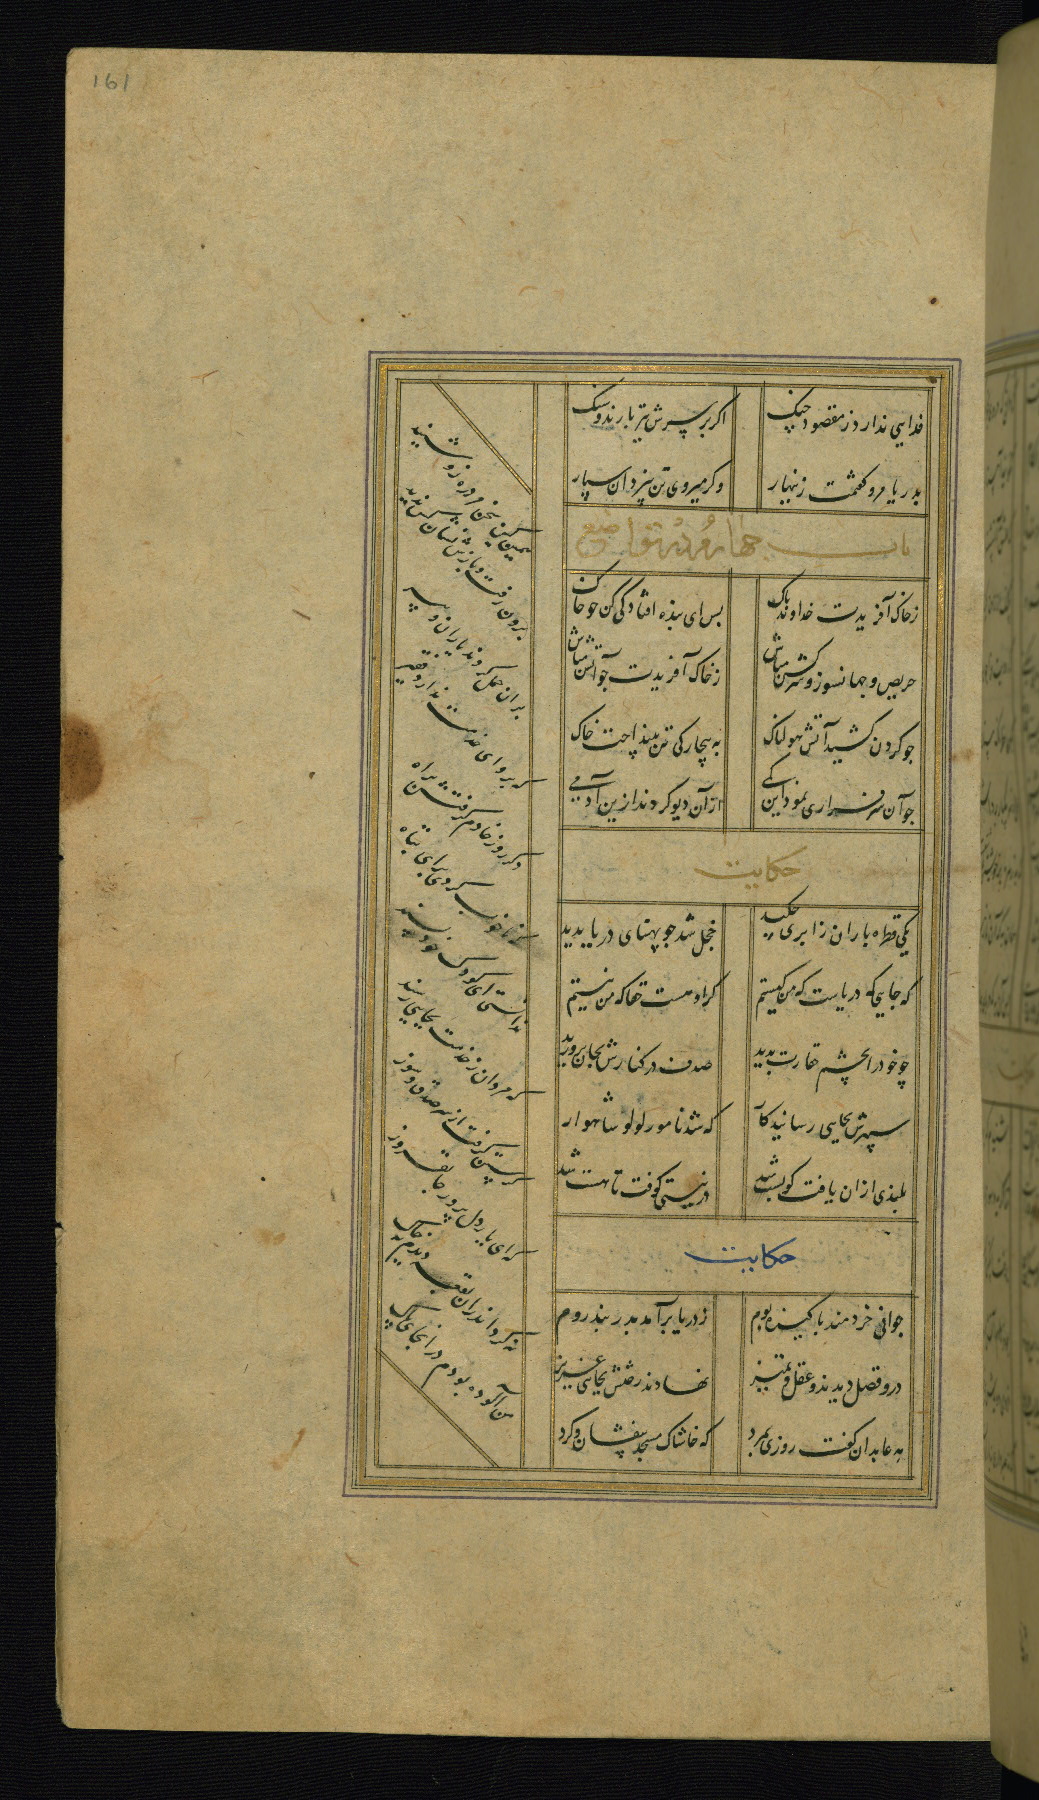 161
فدایی ندارد ز مقصود چنگ اگر بر سرش تیر بارند و سنگ
بدریا مرو گفتمت زینهار وگر میروی تن بیزدان سپار
باب چهارم در تواضع
ز خاک آفریدت خداوند پاک پس ای بنده افتادگی کن جو خاک
حریص و جهانسوز و سرکش مباش ز خاک آفریدت جو آتش مباش
جو گردن کشید آتش هولناک به بیچارگی تن بینداخت خاک
جو آن سرفرازی نمود این کمی از آن دیو کردند ازین آدمی
حکایت
یکی قطره باران ز ابری چکید خجل شد جو پهنای دریا بدید
که جایی که دریاست که من کیستم گر او هست حقا که من نیستم
چو خود را بچشم حقارت بدید صدف در کنارش بجان پرورید
سپهرش بجایی رسانید کار که شد نامور لولو شاهوار
بلندی از آن یافت کو پست شد در نیستی کوفت تا هست شد
حکایت
جوانی خردمند پاکیزه بوم ز دریا برآمد بدربند روم
درو فضل دیدند و عقل و تمییز نهادند رختش بجایی عزیز
به عابدان گفت روزی بمرد که خاشاک مسجد بیفشان و گرد
همین کین سخن مرد ره رو شنید
برون رفت و بازش نشان کس ندید
بر آن حمل کردند یاران و پیر
که پروای خدمت ندارد فقیر
دگر روز خادم گرفتش براه
که ناخوب کردی برای تباه
ندانستی ای کودک خود پسند
که مردان ز خدمت بجایی رسند
گرستن گرفت از سر صدق و سوز
که ای یار دل پرور جانفروز
نه گرد اندران بقعه دیدم نه خاک
من آلوده بودم در آن جای پاک